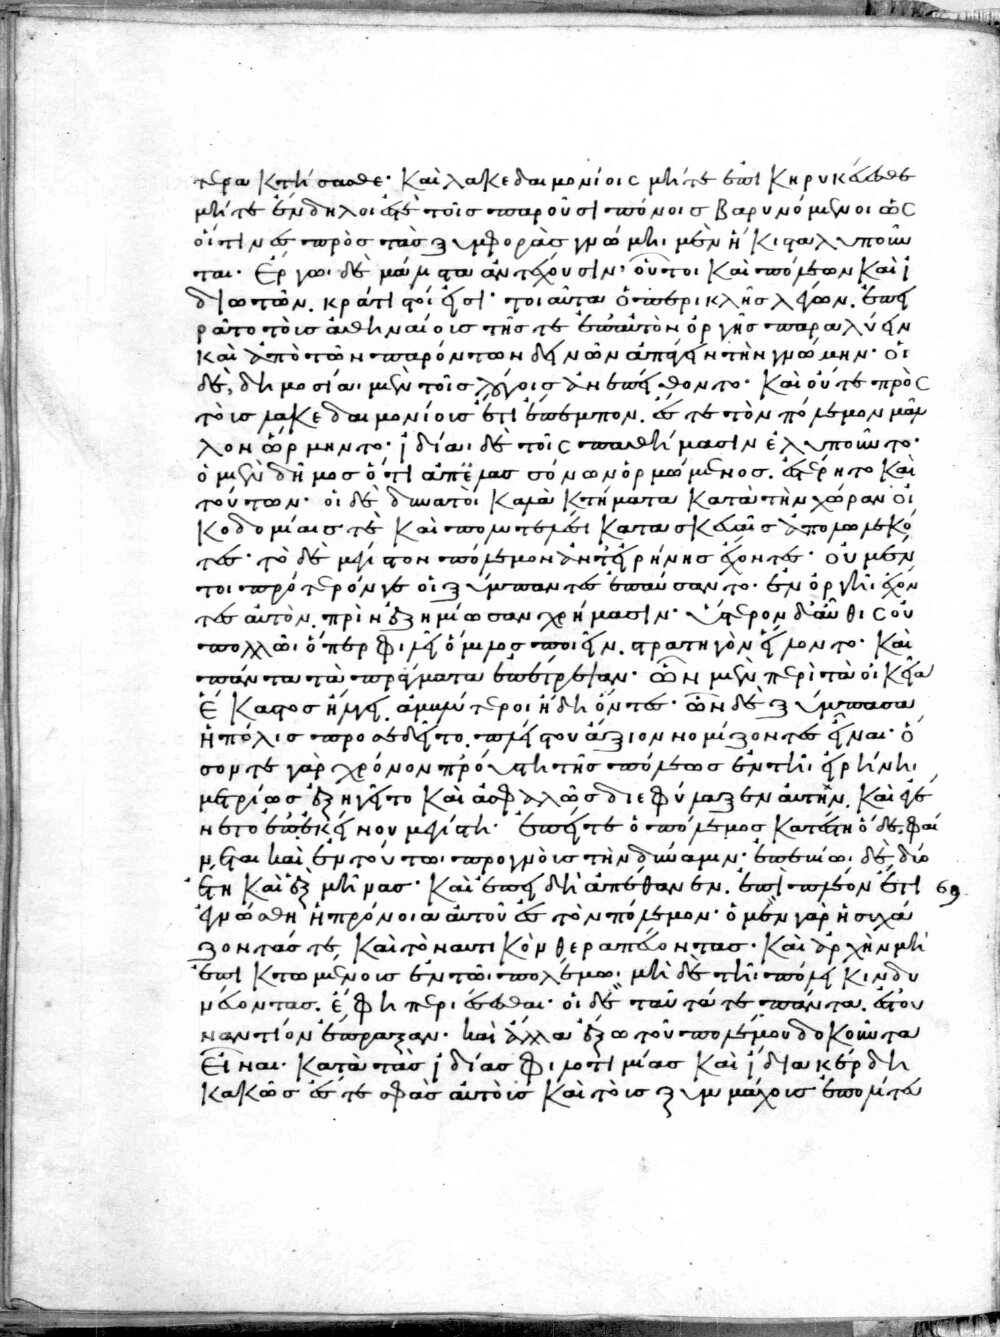 τερα κτήσασθε· καὶ λακεδαιμονίοις μήτε ἐπὶ κηρυκεύεσθε
μήτε ἔνδηλοι ἔστε τοῖς παροῦσι πόνοις βαρυνόμενοι ὡς
οἵτινες πρὸς τὰς ξυμφορὰς γνώμηι μὲν ἥκιστα λυποῦν
ται· ἔργωι δὲ μάλιστα ἀντέχουσιν· οὗτοι καὶ πόλεων καὶ ἰ
διωτῶν. κράτιστοί εἰσι· τοιαῦτα ὁ περικλῆς λέγων. ἐπει
ρᾶτο τοὺς ἀθηναίους τῆς τε ἐπ' αὐτὸν ὀργῆς παραλύειν
καὶ ἀπὸ τῶν παρόντων δεινῶν ἀπάγειν τὴν γνώμην· οἱ
δὲ, δημοσίαι μὲν τοῖς λόγοις ἀνεπείθοντο· καὶ οὔτε πρὸς
τοὺς λακεδαιμονίους ἔτι ἔπεμπον. ἔς τε τὸν πόλεμον μᾶλ
λον ὥρμηντο· ἰδίαι δὲ τοῖς παθήμασιν ἐλυποῦντο·
ὁ μὲν δῆμος ὅτι ἀπ' ἐλασσόνων ὁρμώμενος. ἐστέρητο καὶ
τούτων· οἱ δὲ δυνατοὶ καλὰ κτήματα κατὰ τὴν χώραν οἰ
κοδομίαις τὲ καὶ πολυτελέσι κατασκευαῖς ἀπολωλεκό
τες· τὸ δὲ μέγιστον πόλεμον ἀντ' εἰρήνης ἔχοντες· οὐ μέν
τοι πρότερόν γε οἱ ξύμπαντες ἐπαύσαντο· ἐν ὀργῆι ἔχον
τες αὐτὸν. πρὶν ἐζημίωσαν χρήμασιν· ὕστερον δ' αὖθις οὐ
πολλῶι ὅπερ φιλεῖ ὅμιλος ποιεῖν. στρατηγὸν εἵλοντο· καὶ
πάντα τὰ πράγματα ἐπέτρεψαν· ὧν μὲν περὶ τὰ οἰκεῖα
ἕκαστος ἤλγει. ἀμβλύτεροι ἤδη ὄντες· ὧν δὲ ξύμπασα
ἡ πόλις προσεδεῖτο. πλείστου ἄξιον νομίζοντες εἶναι· ὅ
σον τε γὰρ χρόνον πρόυστη τῆς πόλεως ἐν τῆι εἰρήνηι.
μετρίως ἐξηγεῖτο καὶ ἀσφαλῶς διεφύλαξεν αὐτήν. καὶ ἐγέ
νετο ἐπ' ἐκείνου μεγίστη· ἐπεί τε ὁ πόλεμος κατέστη ὁ δὲ φαί
νεται καὶ ἐν τούτωι προγνοὺς τὴν δύναμιν· ἐπεβίω δὲ δύο
ἔτη καὶ ἓξ μῆνας· καὶ ἐπειδὴ ἀπέθανεν. ἐπὶ πλέον ἔτι
69
ἐγνώσθη ἡ πρόνοια αὐτοῦ ἐς τὸν πόλεμον· ὁ μὲν γὰρ ἡσυχά
ζοντάς τε καὶ τὸ ναυτικὸν θεραπεύοντας· καὶ ἀρχὴν μὴ
ἐπικτωμένους ἐν τῶι πολέμωι μὴ δὲ τῆι πόλει κινδυ
νεύοντας. ἔφη περιέσεσθαι· οἱ δὲ ταῦτά τε πάντα. ἐς τοὐ
ναντίον ἔπραξαν· καὶ ἄλλα ἔξω τοῦ πολέμου δοκοῦντα
εἶναι· κατὰ τὰς ἰδίας φιλοτιμίας καὶ ἴδια κέρδη
κακῶς ἔς τε σφᾶς αὐτοὺς καὶ τοὺς ξυμμάχους ἐπολίτευ